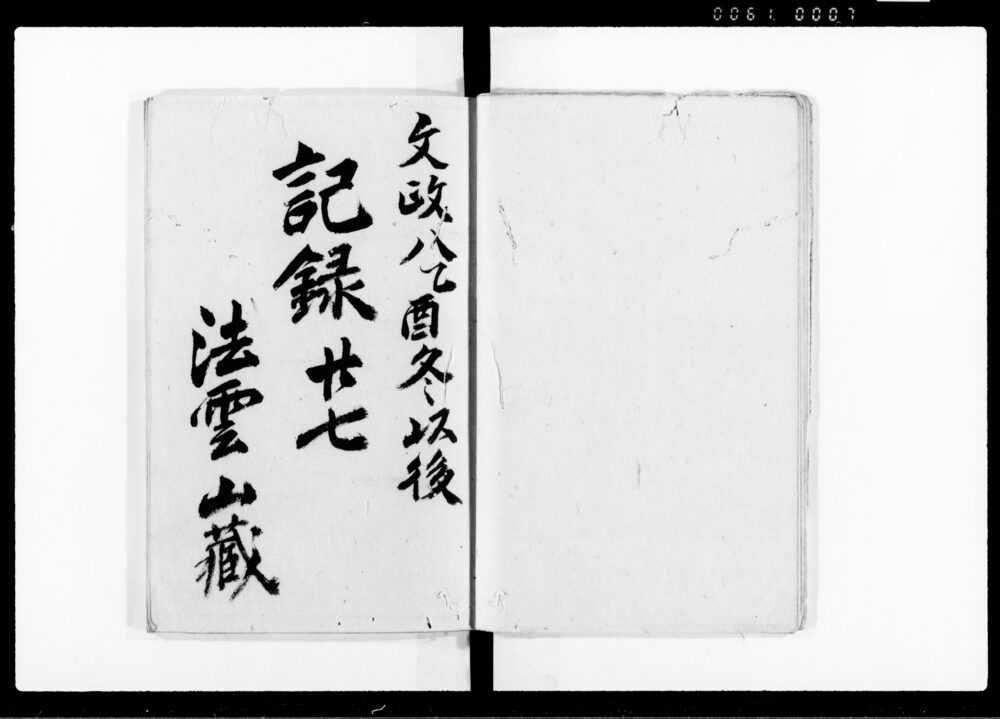 0061 0007
文政八乙酉冬以後
記録 廿七
法雲山藏